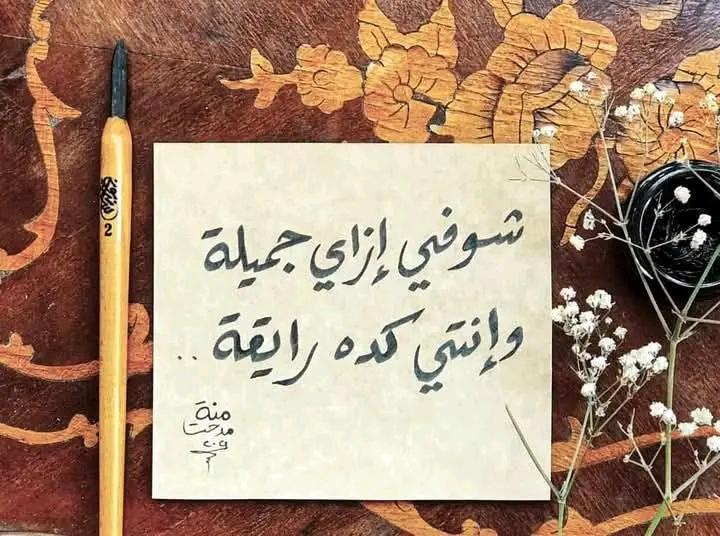 شوفي إزاي جميلة
وإنتي كده رايقة ..
منة
مدحت
2